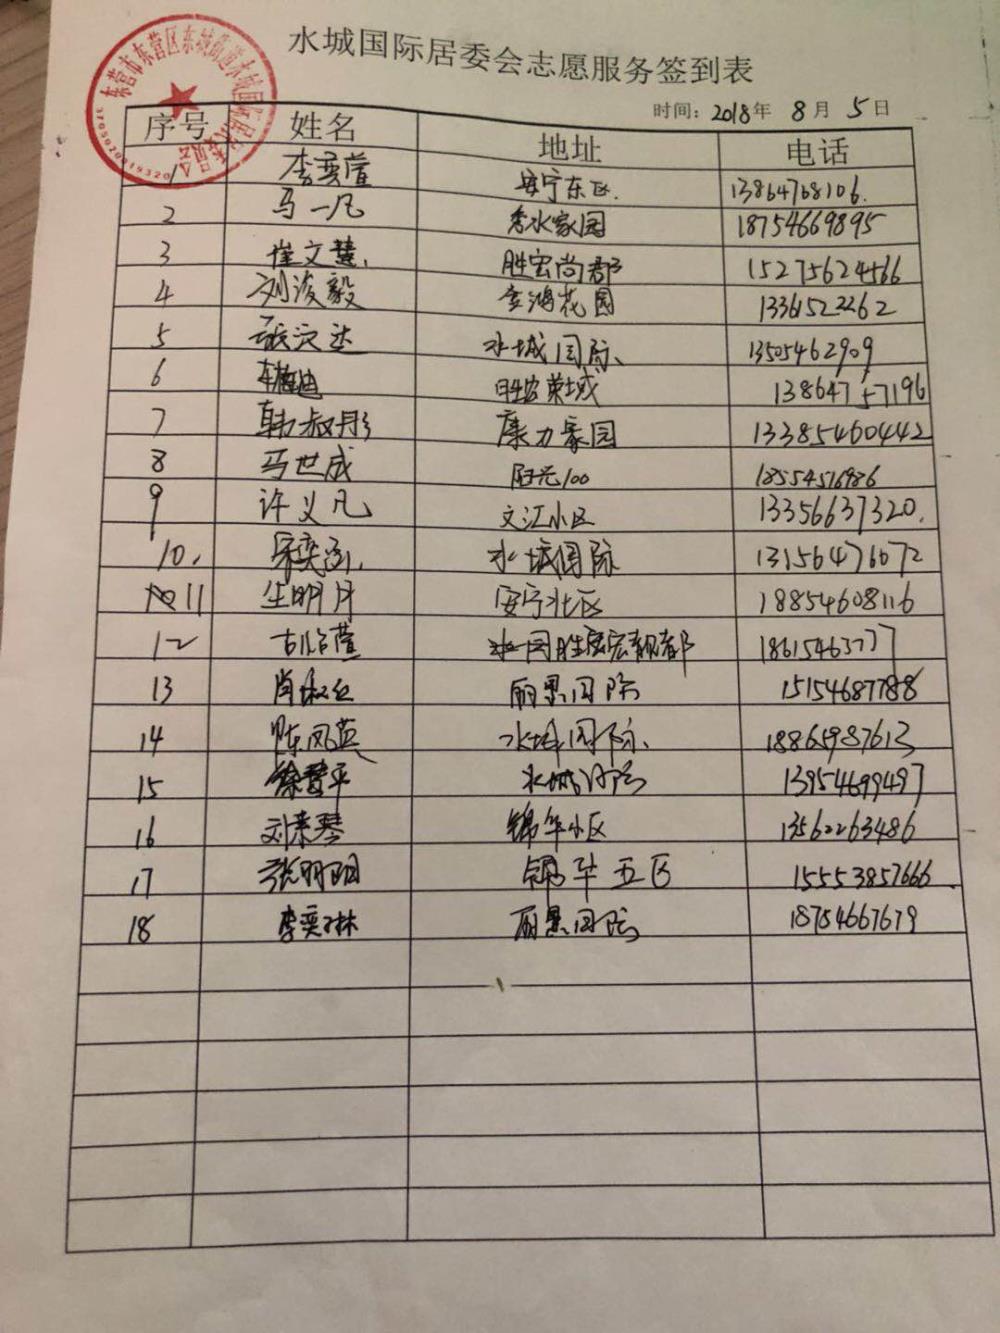 水城国际居委会志愿服务签到表
时间：2018年 8月 5日
东营市东营区东城街道水城国际居民委员会
3705020119320
序号 姓名 地址 电话
1 安宁东区. 13864768106.
2 马一凡 秀水家园 18754669895
3 崔文慧. 胜宏尚郡 15275624566
4 刘浚毅 金鸿花园 13361523262
5 汉达 水城国际、 13505462909
6 13864757196
7 韩叔彤 康力家园 13385460442
8 马世成 阳光100 18554516986
9 许义凡 文汇小区 13356637320.
10. 宋奕泓. 水城国际 13156476072
11 生明月 安宁北区 18854608116
12 古怡萱 1861546377
13 肖淑红 丽景国际 15154687788
14 陈凤英 水城国际、 18865987613
15 徐慧平 水城国际 13954699497
16 刘素琴 锦华小区 13562263486
17 张明阳 锦华五区 15553857666.
18 李奕琳 丽景国际 18754667679